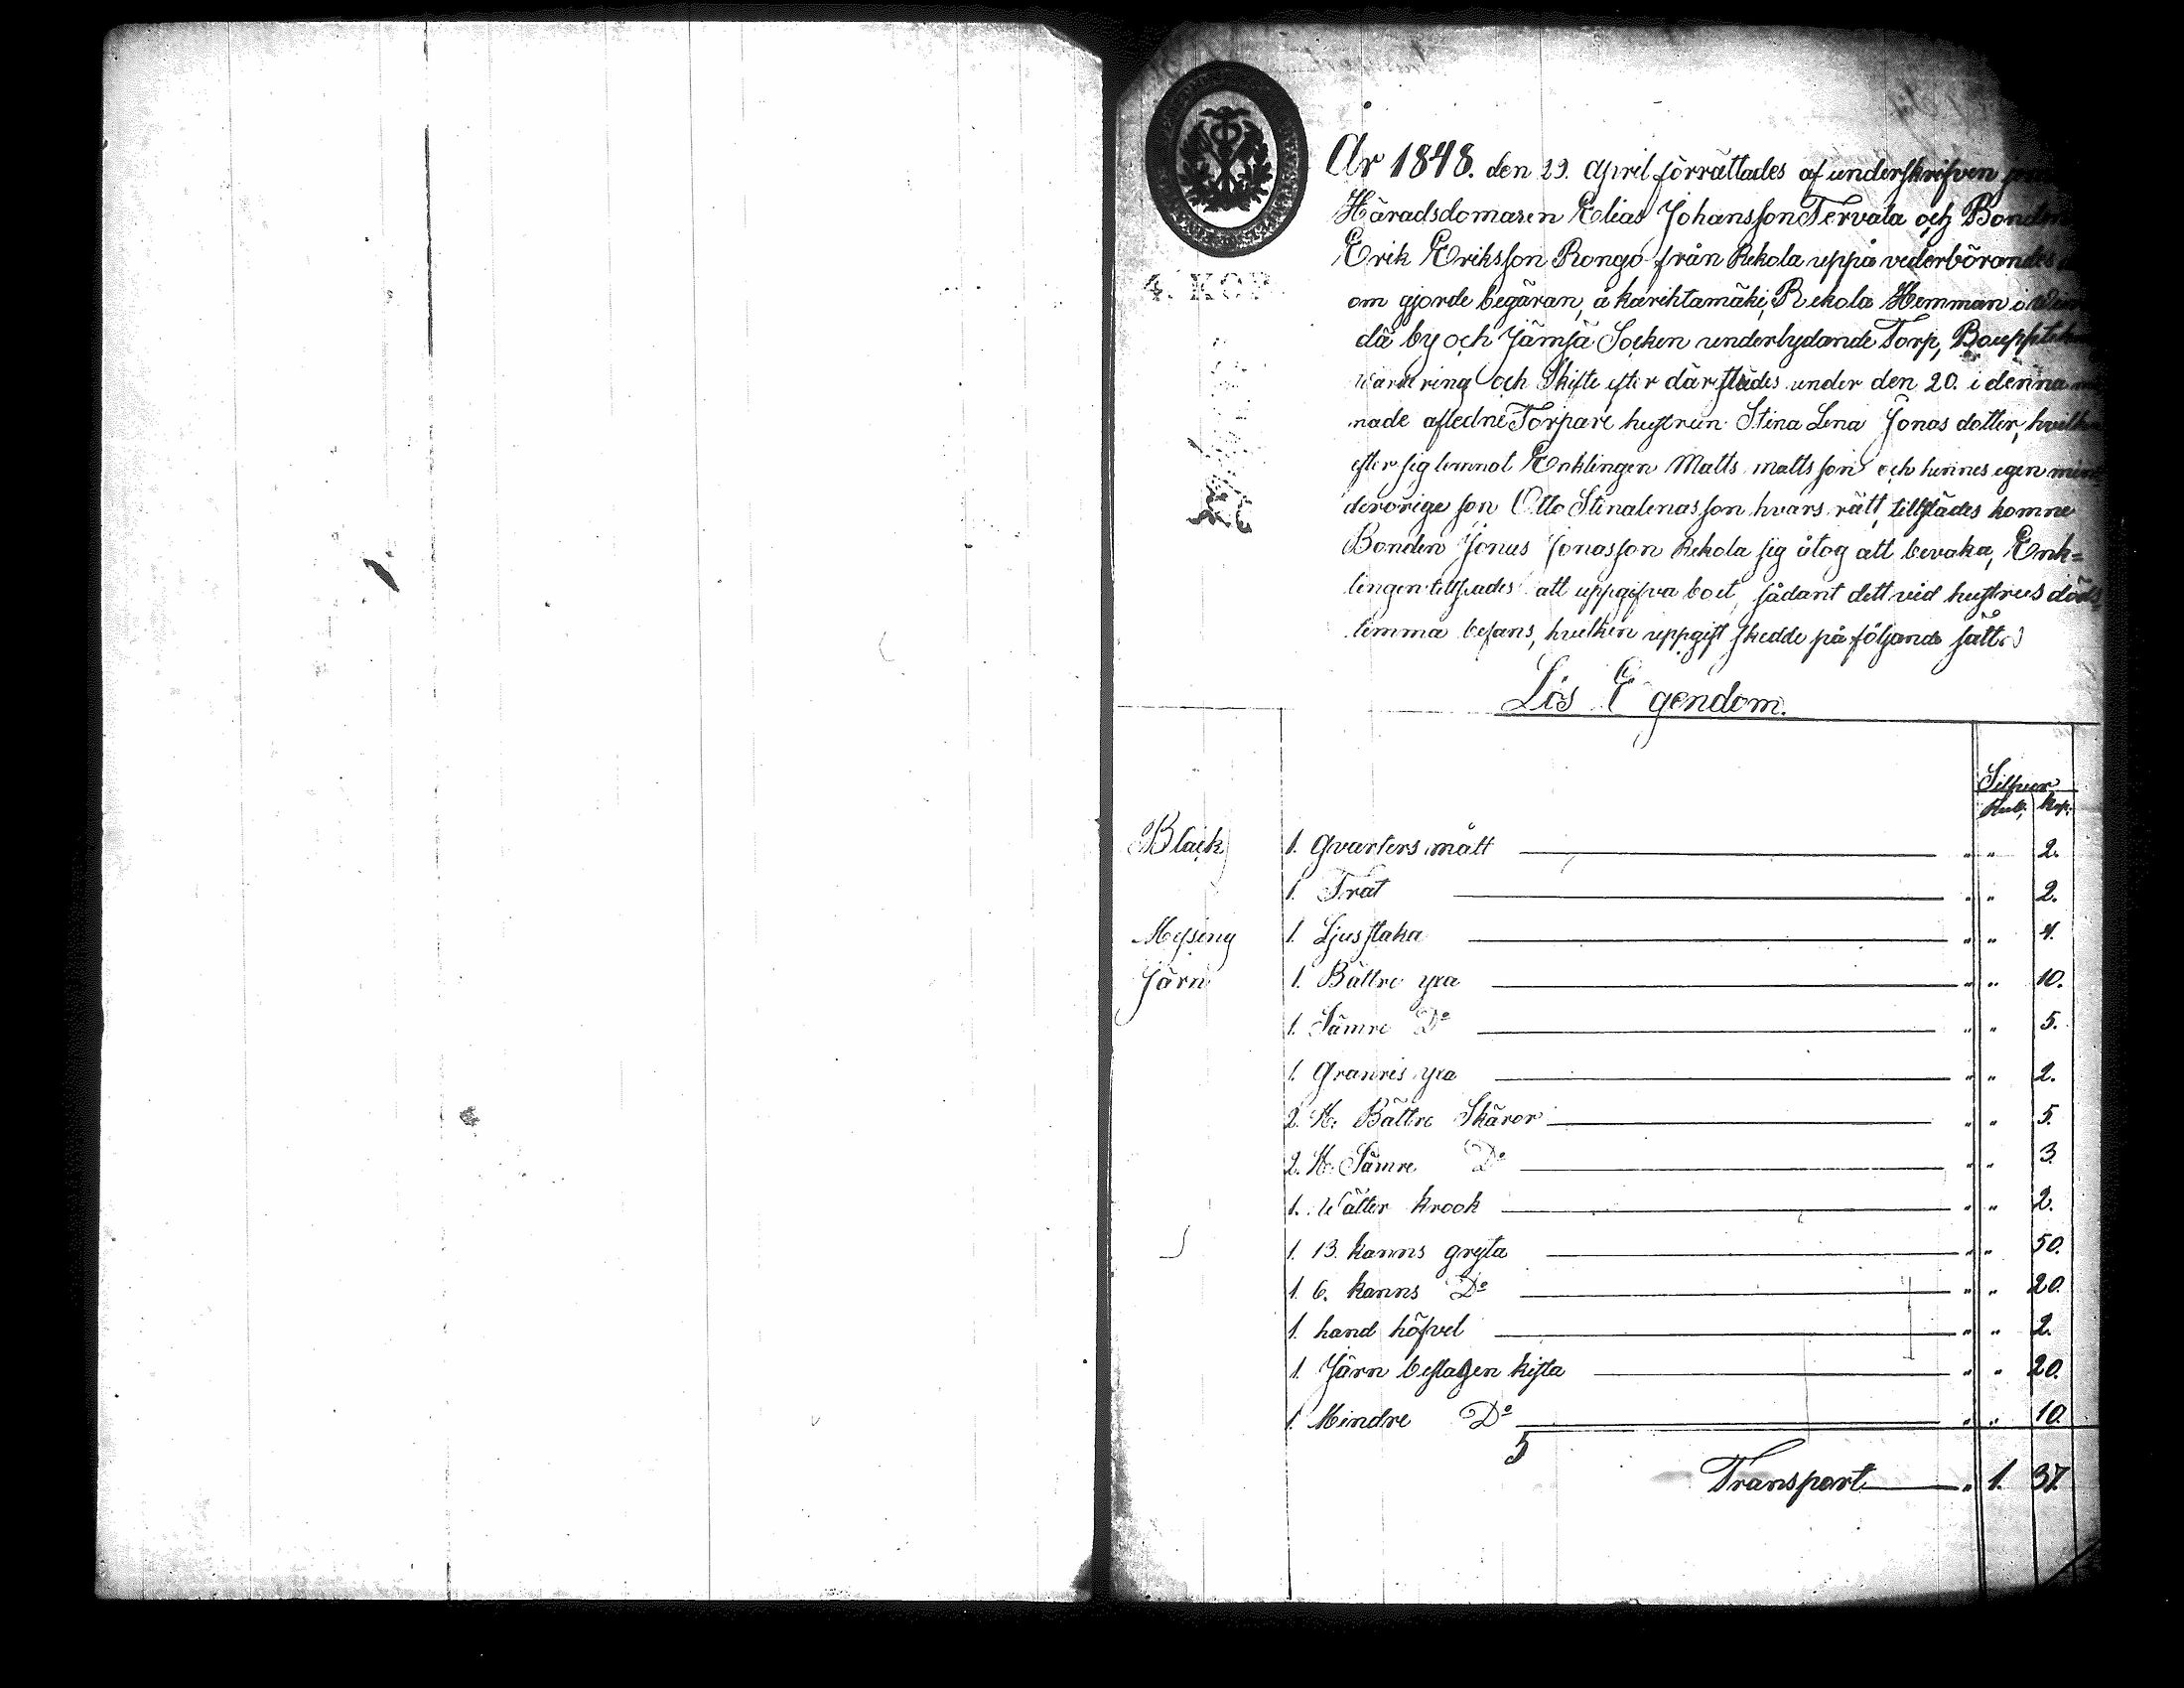 År 1848. den 29. April förrättades af underskrifven
Häradsdomaren Elias Johansson Tervala och Bonden
Erik Eriksson Rongo från Rekola uppå vederbörandes
om gjorde begäran, å karihtamäki, Rekola Hemman i
dä by och Jämsä Socken underlydande Torp,
värdering och Skifte efter därstädes under den 20. i denna
nade afledne Torpare hustrun Stina Lena Jonas dotter, hvilken
efter sig lemnat Enklingen Matts mattsson och hennes egen min
derårige son Otto Stinalenasson hvars rätt, tillstädes komne
Bonden Jonas Jonasson Rekola sig åtog att bevaka, Enk=
lingen tillsades att uppgifva boet, sådant dett vid hustrus döds
temma befans, hvilken uppgift skedde på följande sätt.
Lös Egendom.
Silfver
Rub. Kop.
4. KOP.
Bläck 1. Qvarters mått " " 2.
1. Trat " " 2.
Messing 1. Ljusstaka " " 4.
Järn 1. Bättre yxa " " 10.
1. Sämre Do " " 5.
1. Granris yxa " " 2.
2. St. Bättre Skäror " " 5.
2. St. Sämre Do " " 3.
1. krook " " 2.
1. 13. kanns gryta " " 50.
1. 6. kanns Do " " 20.
1. hand höfvel " " 2.
1. Järn beslagen kista " " 20.
1. Mindre Do " " 10.
5
Transport " 1. 37.